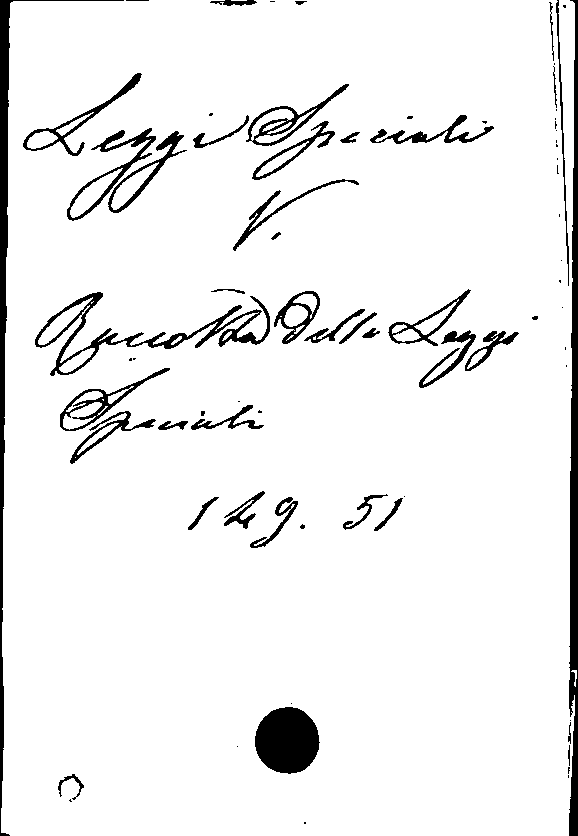 Leggi Speciali
V.
Raccolta delle Leggi
Speciali
149. 51